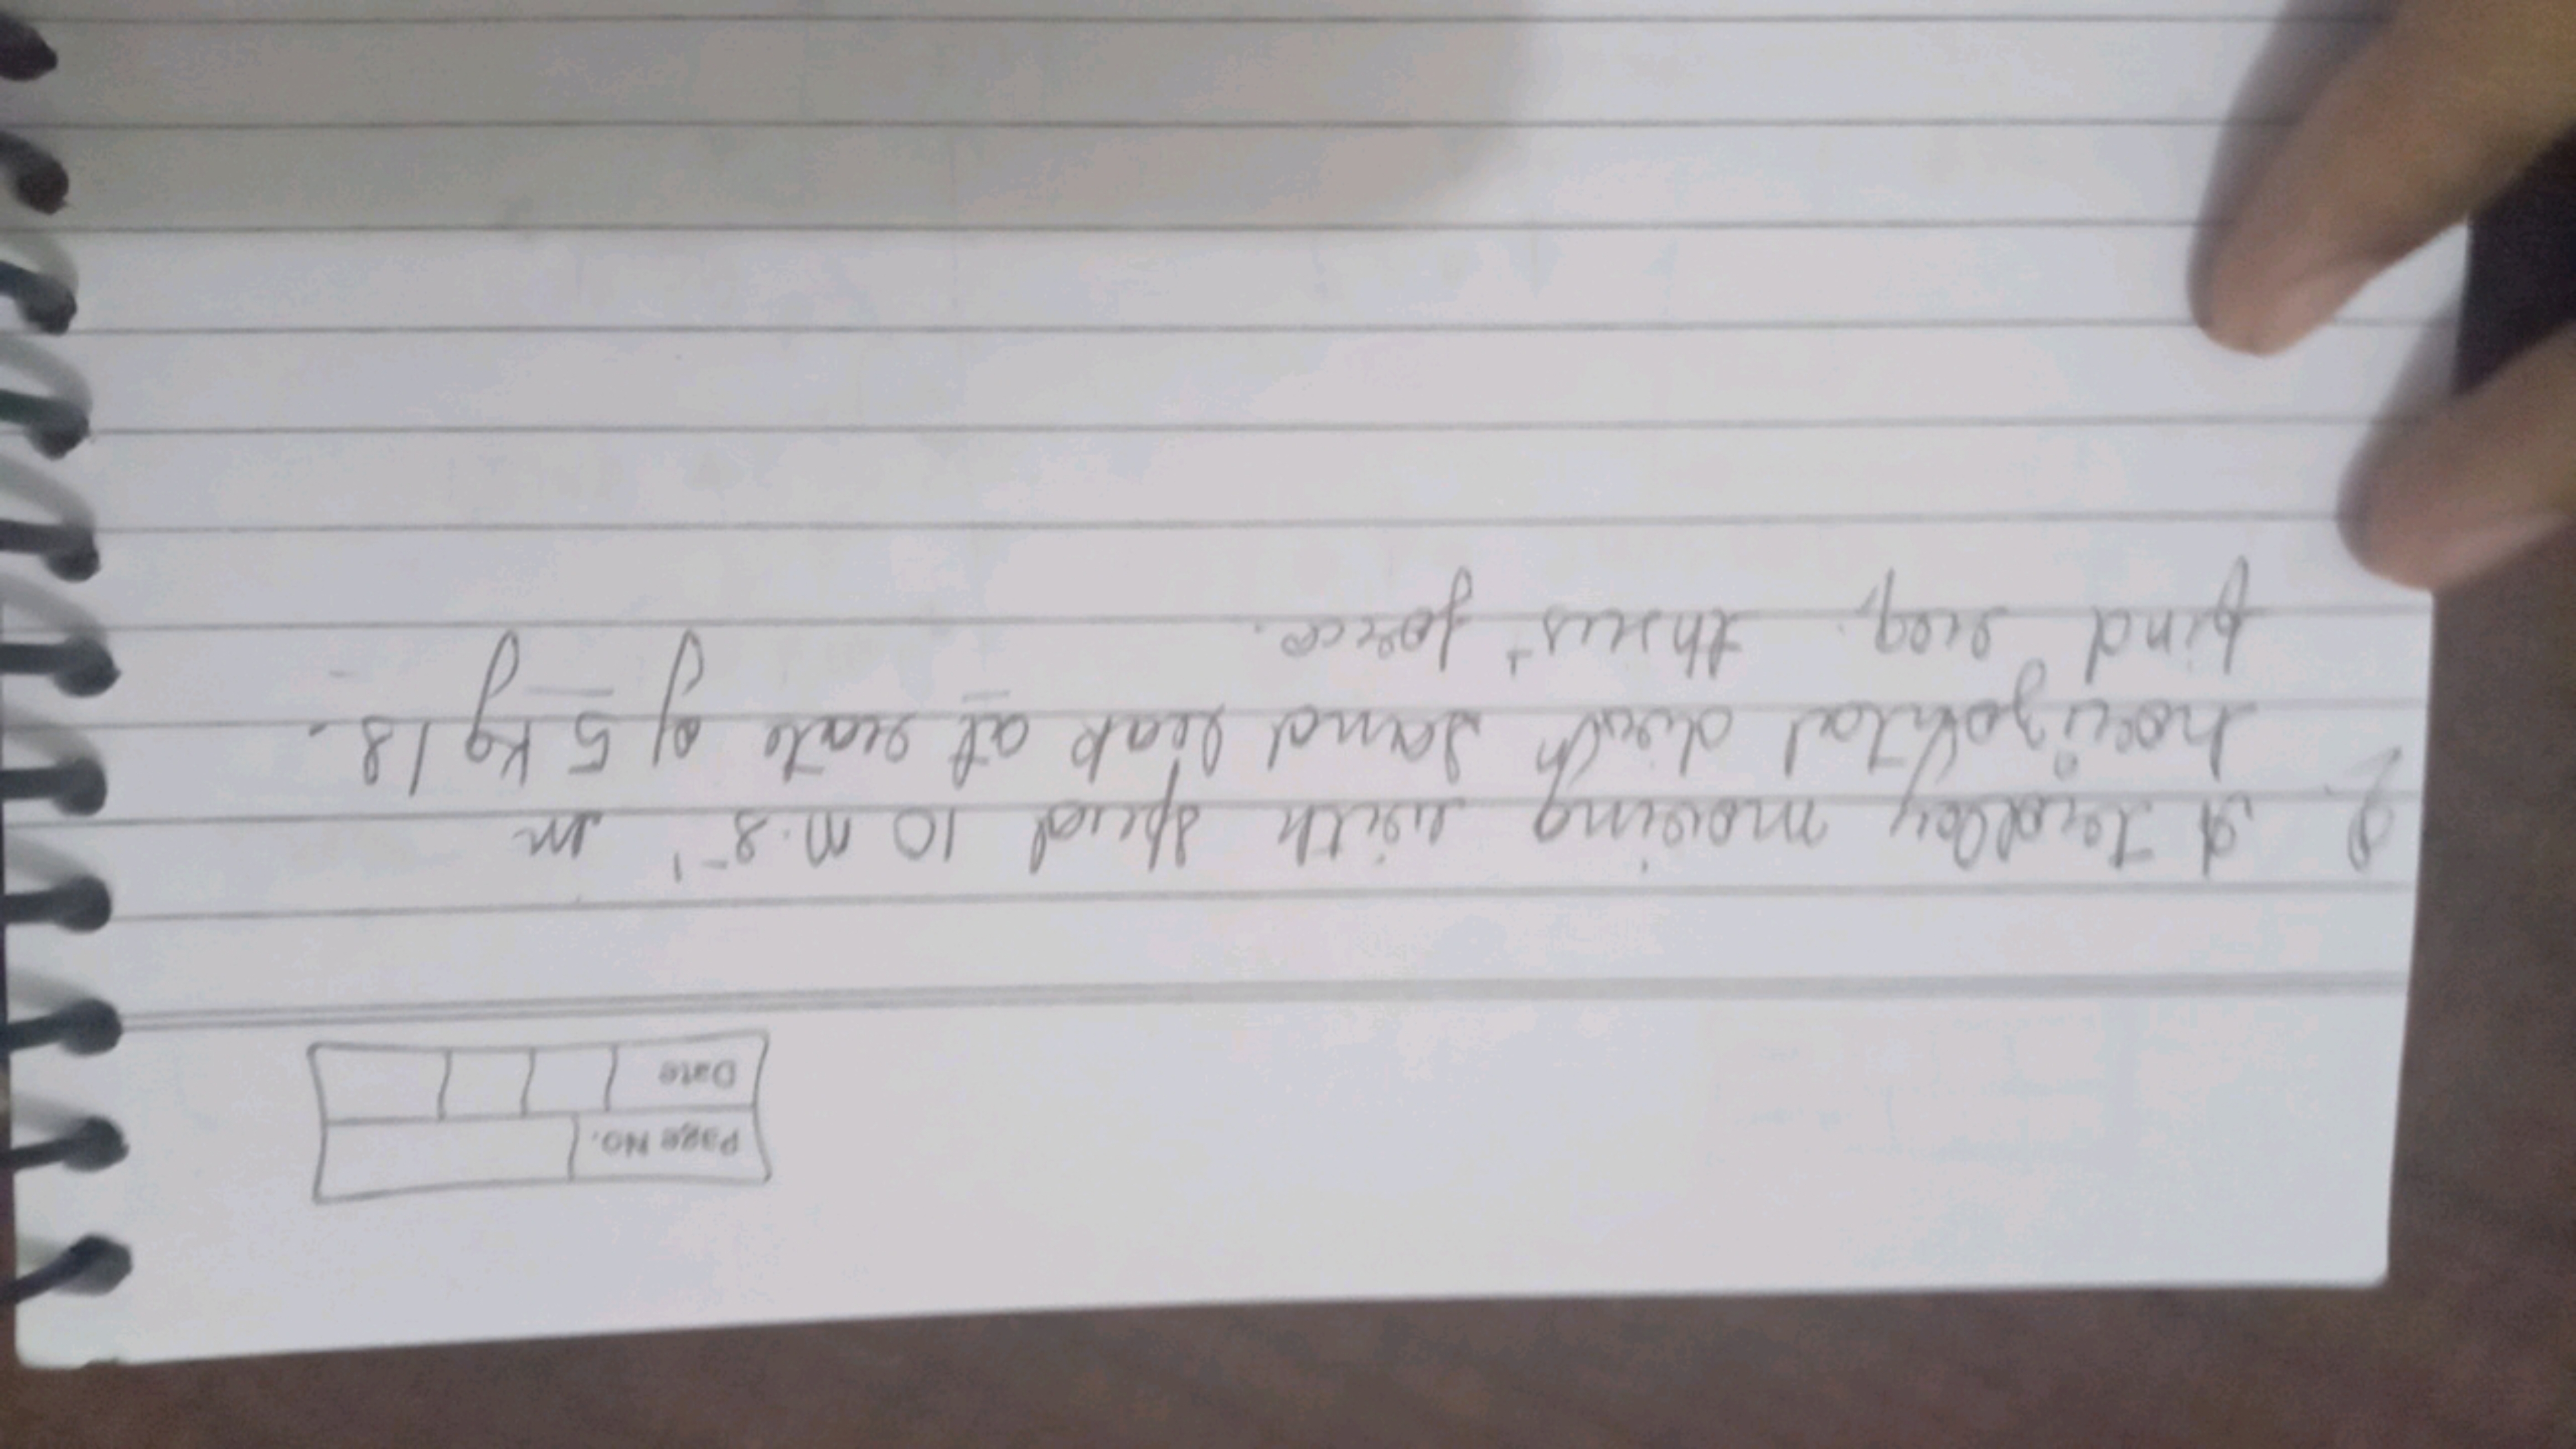 Page No.
Date
Q. A trolley moving with speed 10 m.s⁻¹ in
horizontal dirⁿ sand leak at rate of 5 kg/s.
find req. thrust force.